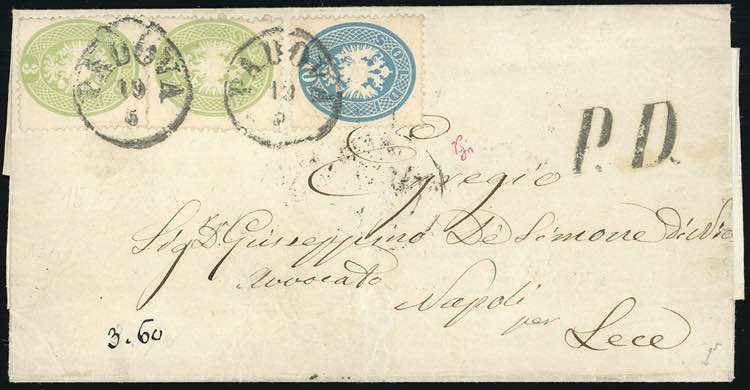 3 SOLDI
PADOVA
19
5
PADOVA
19
5
P.D.
Egregio
Sig Dr Giuseppino De Simone di
Avvocato
Napoli
per
Lece
3.60